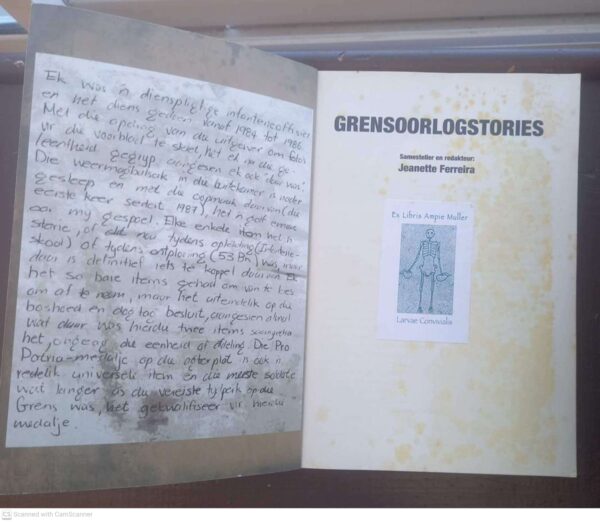 Ek was 'n dienspligtige infanterieoffisier
en het diens gedoen vanaf 1984 tot 1986.
Met die opdrag van die uitgewer om foto's
vir die voorblad te skiet, het ek na die ge-
leentheid gegryp aangesien ek ook "daar was".
Die weermagbalsak in die buitekamer is nader
gesleep en met die oopmaak daarvan (die
eerste keer sedert 1987), het 'n golf emosie
oor my gespoel. Elke enkele item het 'n
storie, of dit nou tydens opleiding (Infanterie-
skool) of tydens ontplooiing (53 Bn) was, maar
daar is definitief iets te koppel daaraan. Ek
het so baie items gehad om van te kies
om af te neem, maar het uiteindelik op die
boshoed en dog tag besluit, aangesien almal
wat daar was hierdie twee items
het, ongeag die eenheid of afdeling. Die Pro
Patria-medalje op die agterplat is ook 'n
redelik universele item en die meeste soldate
wat langer as die vereiste tydperk op die
Grens was, het gekwalifiseer vir hierdie
medalje.
GRENSOORLOGSTORIES
Samesteller en redakteur:
Jeanette Ferreira
Ex Libris Ampie Muller
Larvae Convivialis
CS Scanned with CamScanner